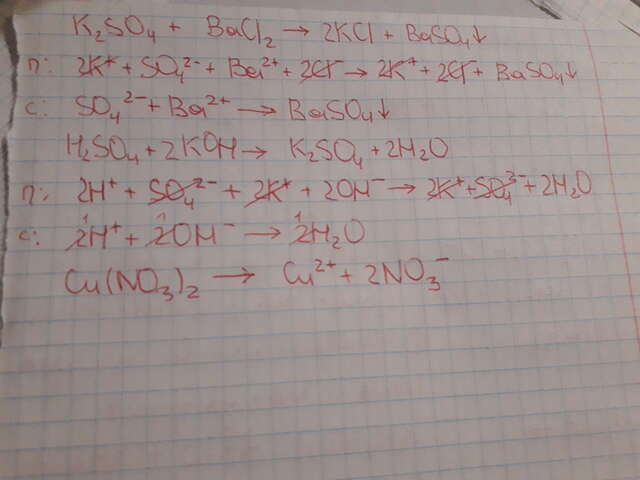 K₂SO₄ + BaCl₂ → 2KCl + BaSO₄↓
п: 2K⁺ + SO₄²⁻ + Ba²⁺ + 2Cl⁻ → 2K⁺ + 2Cl⁻ + BaSO₄↓
с: SO₄²⁻ + Ba²⁺ → BaSO₄↓
H₂SO₄ + 2KOH → K₂SO₄ + 2H₂O
п: 2H⁺ + SO₄²⁻ + 2K⁺ + 2OH⁻ → 2K⁺ + SO₄²⁻ + 2H₂O
с: 2¹H⁺ + 2¹OH⁻ → 2¹H₂O
Cu(NO₃)₂ → Cu²⁺ + 2NO₃⁻